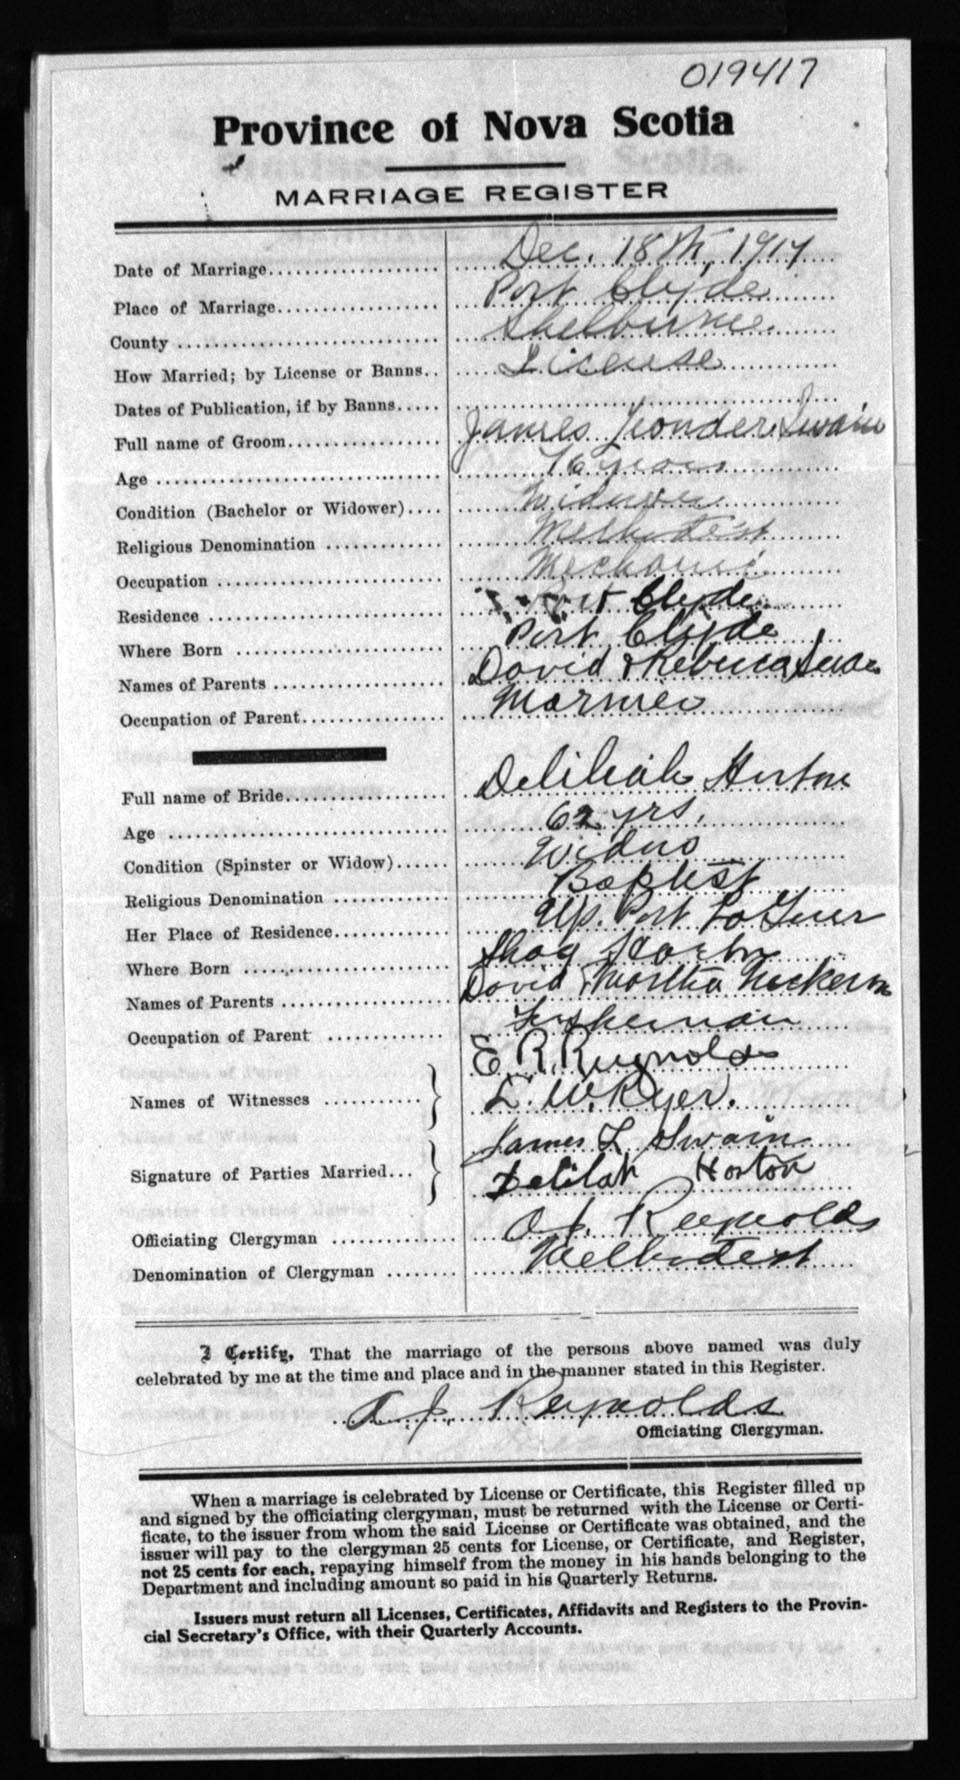 019417
Province of Nova Scotia
MARRIAGE REGISTER
Date of Marriage Dec. 18th, 1917
Place of Marriage Port Clyde
County Shelburne
How Married; by License or Banns License
Dates of Publication, if by Banns
Full name of Groom James Leonder Swain
Age 76 years
Condition (Bachelor or Widower) Widower
Religious Denomination Methodist
Occupation Mechanic
Residence Port Clyde
Where Born Port Clyde
Names of Parents David & Rebecca Swain
Occupation of Parent Mariner
Full name of Bride Delilah Horton
Age 62 yrs.
Condition (Spinster or Widow) Widow
Religious Denomination Baptist
Her Place of Residence Up. Port La Tour
Where Born Shag Harbor
Names of Parents David & Martha Nickerson
Occupation of Parent Fisherman
Names of Witnesses E. R. Reynolds
L. W. Ryer.
Signature of Parties Married James L Swain
Delilah Horton
Officiating Clergyman A. J. Reynolds
Denomination of Clergyman Methodist
I Certify, That the marriage of the persons above named was duly
celebrated by me at the time and place and in the manner stated in this Register.
A. J. Reynolds
Officiating Clergyman.
When a marriage is celebrated by License or Certificate, this Register filled up
and signed by the officiating clergyman, must be returned with the License or Certi-
ficate, to the issuer from whom the said License or Certificate was obtained, and the
issuer will pay to the clergyman 25 cents for License, or Certificate, and Register,
not 25 cents for each, repaying himself from the money in his hands belonging to the
Department and including amount so paid in his Quarterly Returns.
Issuers must return all Licenses, Certificates, Affidavits and Registers to the Provin-
cial Secretary's Office, with their Quarterly Accounts.